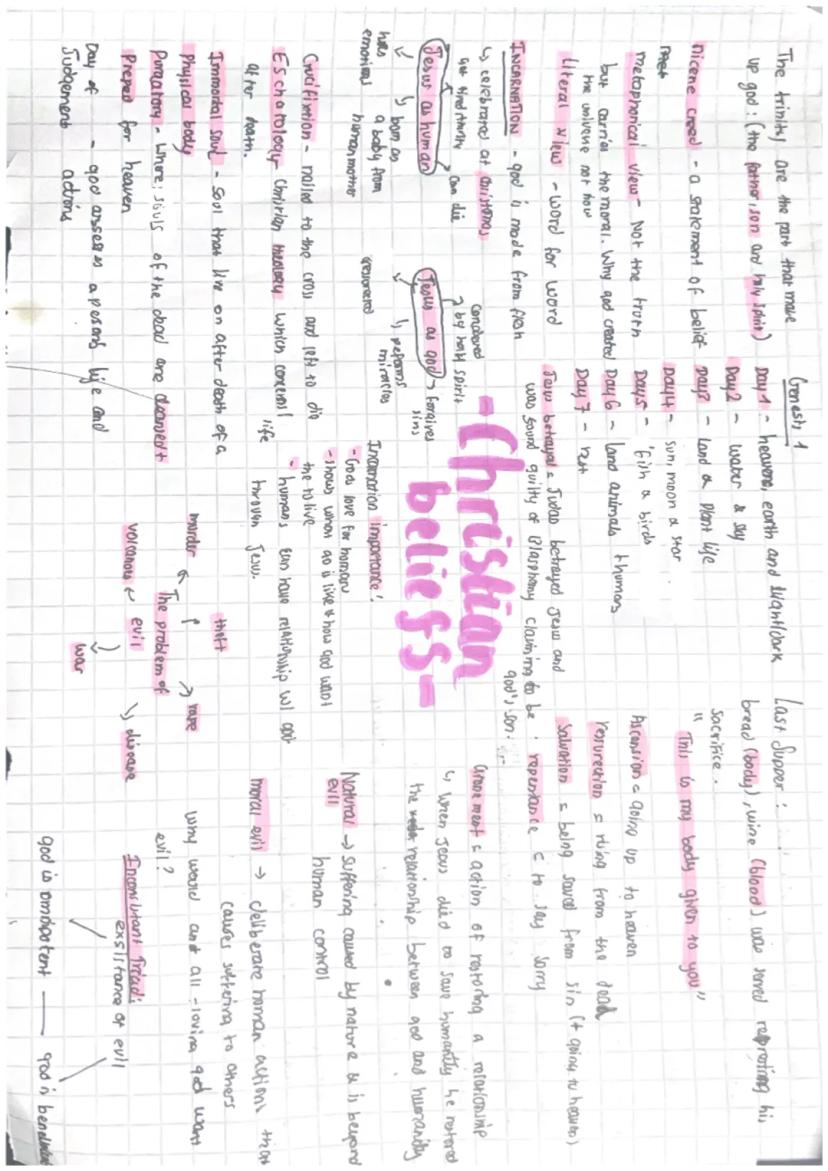 - Christian beliefs -
The trinity are the part that make
up god : (the father, son and holy spirit)
Nicene creed - a statement of belief
metaphorical view - Not the truth
but carries the moral. Why god created
the universe not how
literal view - word for word
INCARNATION - god is made from flesh
↳ celebrated at christmas
got tired thirsty
can die
Jesus as human
has emotions
born as a baby from human mother
conceived by holy spirit
Jesus as god → forgives sins
resurrected
performs miracles
Crucifixtion - nailed to the cross and left to die
Eschatology - Christian theology which concerns life
after death.
Immortal soul - soul that live on after death of a
Physical body
Purgatory - where; souls of the dead are cleansed +
Preped for heaven
Day of Judgement - god assesses a persons life and actions
Genesis 1
Day 1 - heavens, earth and light/dark
Day 2 - water & sky
Day 3 - land & plant life
Day 4 - sun, moon & star
Day 5 - fish & birds
Day 6 - land animals + humans
Day 7 - rest
Jesus betrayal = Judas betrayed Jesus and
was found guilty of Blasphemy claiming to be
god's son.
Incarnation importance!
- Gods love for humans
- shows what go is like & how god want
the to live
- humans can have relationship w/ god
through Jesus.
The problem of evil
murder
theft
rape
volcanoes
war
disease
Last Supper :
bread (body), wine (blood) was served his
sacrifice.
" This is my body given to you "
Ascension = going up to heaven
resurection = rising from the dead
Salvation = being saved from sin (+ going to heaven)
repentance = to say sorry
= action of restoring a relationship
↳ When Jesus died to save he restored
the relationship between god and humanity
Natural evil → suffering caused by nature & is beyond
human control
moral evil → deliberate human actions that
causes suffering to others
why would and all - loving god want
evil?
Inconsistant Triad:
exsistance of evil
god is omnipotent — god is